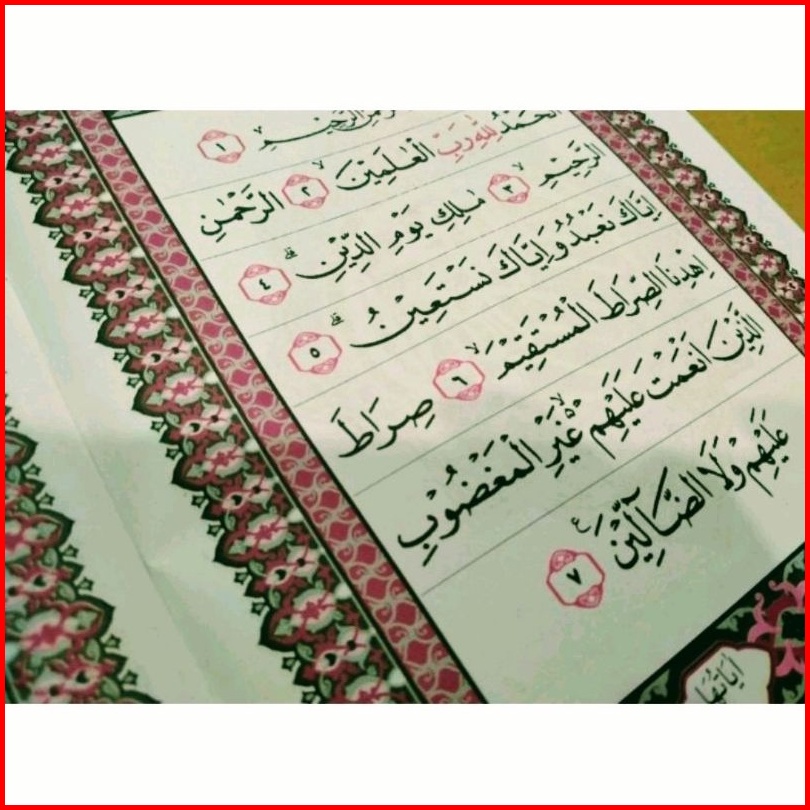 الرَّحِيْمِ ۝١
الْحَمْدُ لِلّٰهِ رَبِّ الْعٰلَمِيْنَ ۝٢ الرَّحْمٰنِ
الرَّحِيْمِ ۝٣ مٰلِكِ يَوْمِ الدِّيْنِ ۝٤
اِيَّاكَ نَعْبُدُ وَاِيَّاكَ نَسْتَعِيْنُ ۝٥
اِهْدِنَا الصِّرَاطَ الْمُسْتَقِيْمَ ۝٦ صِرَاطَ
الَّذِيْنَ اَنْعَمْتَ عَلَيْهِمْ غَيْرِ الْمَغْضُوْبِ
عَلَيْهِمْ وَلَا الضَّآلِّيْنَ ۝٧
اٰيَاتُهَا